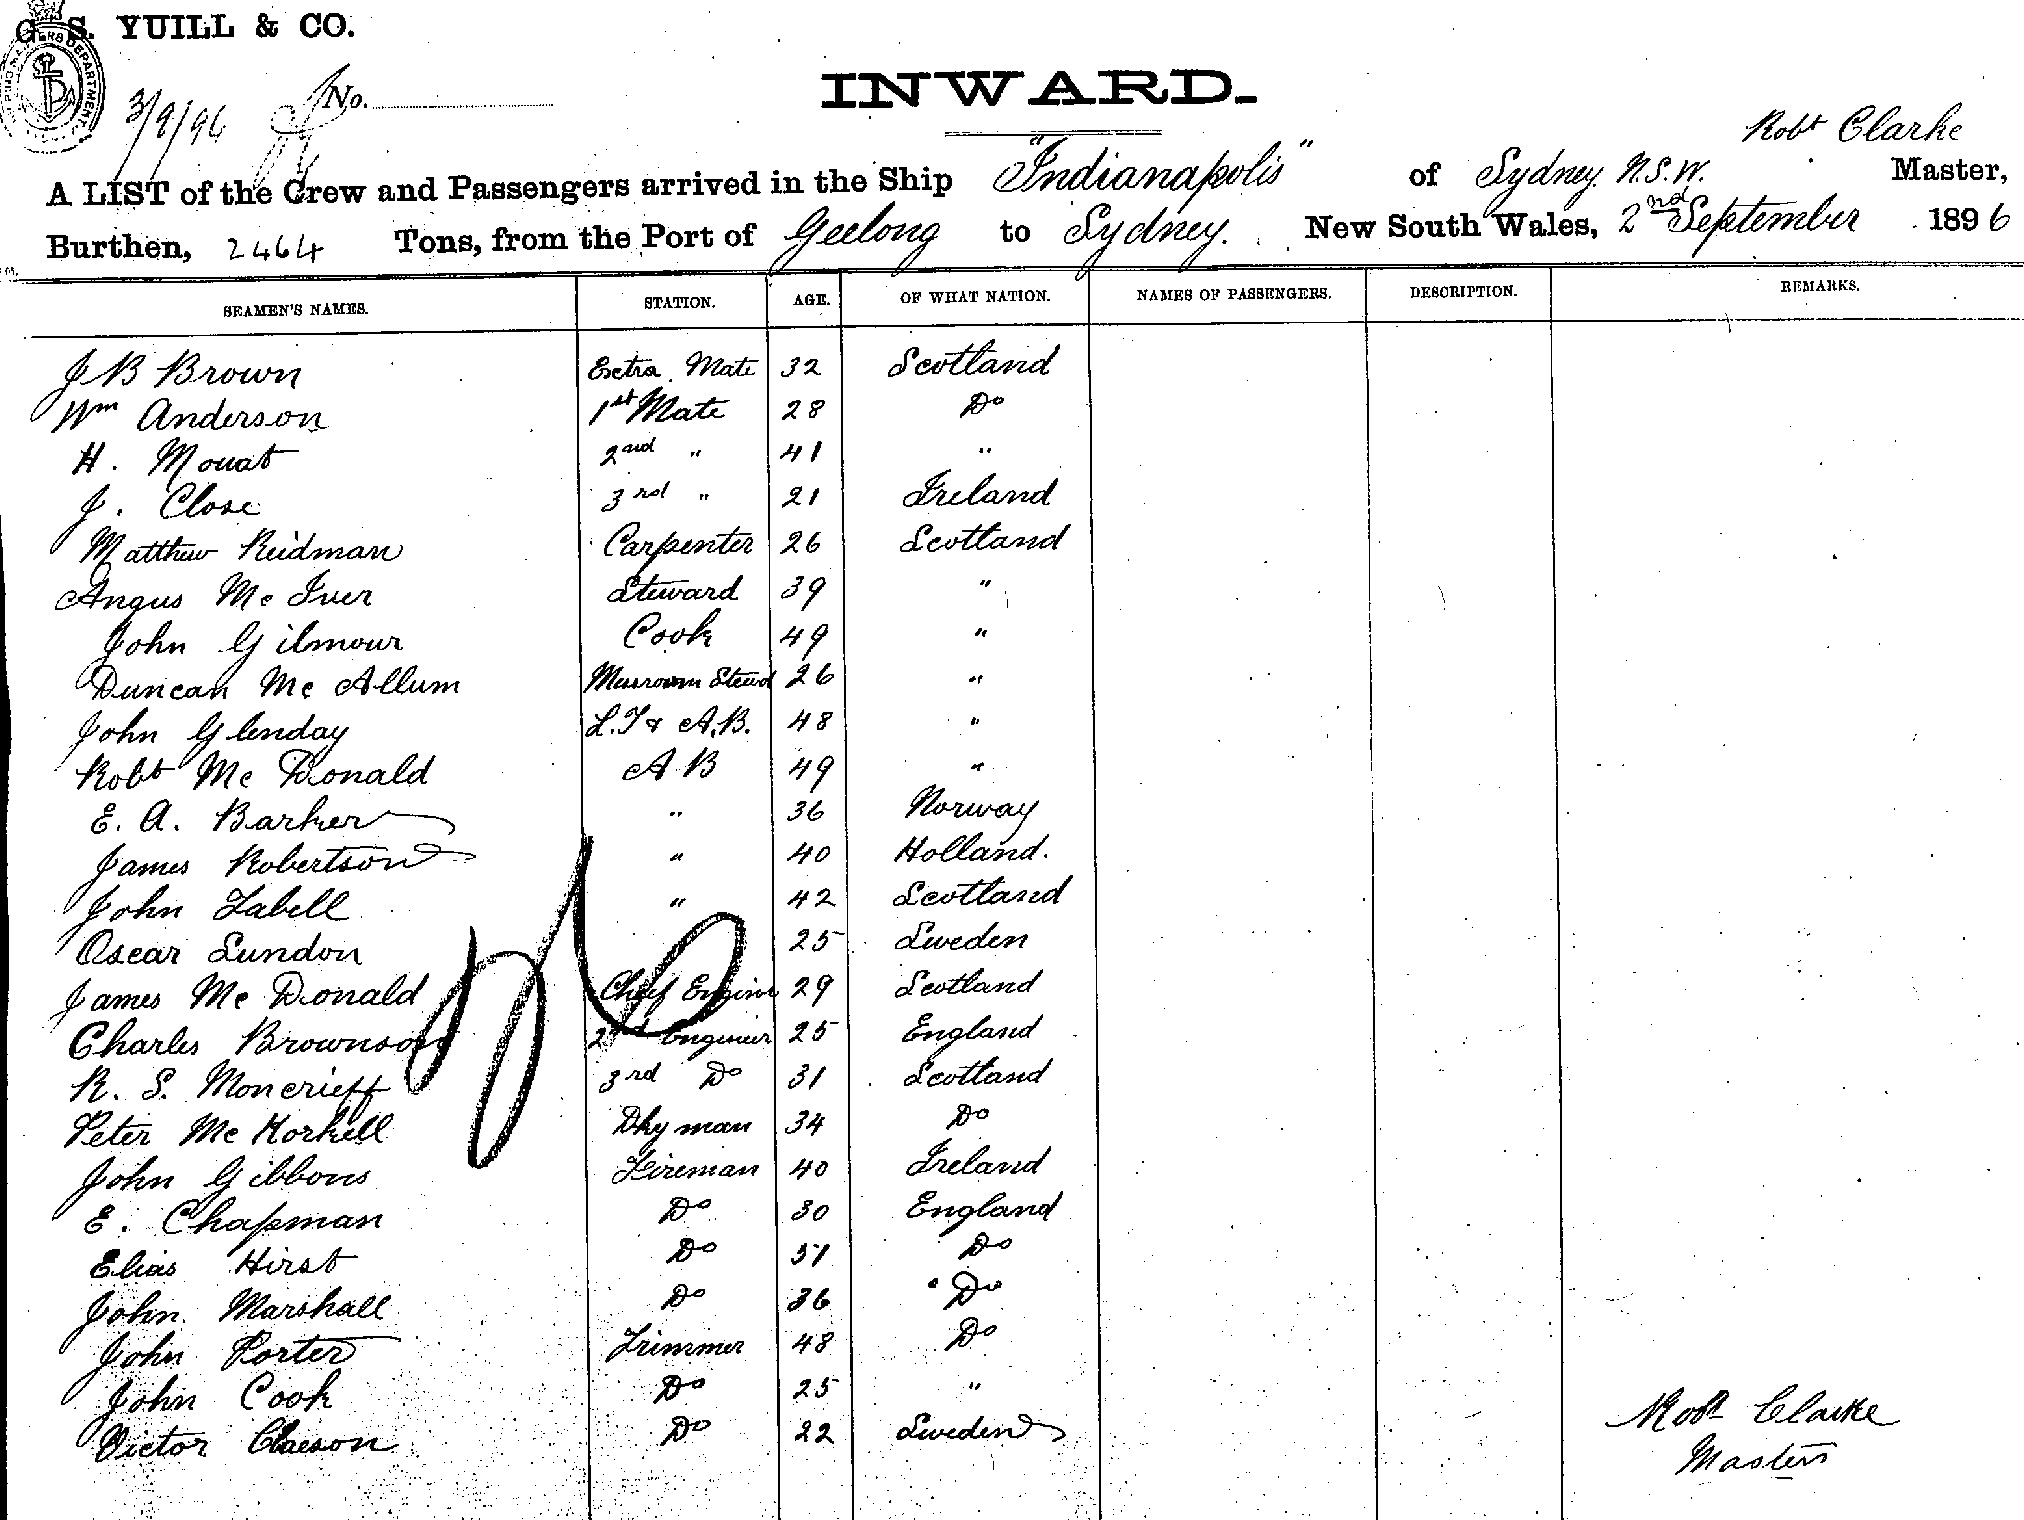 G. S. YUILL & CO.
3/9/96 No.
INWARD.
Robt Clarke
A LIST of the Crew and Passengers arrived in the Ship "Indianapolis" of Sydney N.S.W. Master,
Burthen, 2464 Tons, from the Port of Geelong to Sydney. New South Wales, 2nd September 1896
SEAMEN'S NAMES. STATION. AGE. OF WHAT NATION. NAMES OF PASSENGERS. DESCRIPTION. REMARKS.
J B Brown Extra Mate 32 Scotland
Wm Anderson 1st Mate 28 Do
H. Mouat 2nd " 41 "
J. Close 3rd " 21 Ireland
Matthew Reidman Carpenter 26 Scotland
Angus Mc Iver Steward 39 "
John Gilmour Cook 49 "
Duncan Mc Allum Messroom Stewd 26 "
John Glenday L.T & A.B. 48 "
Robt Mc Donald A B 49 "
E. A. Barker " 36 Norway
James Robertson " 40 Holland.
John Labell " 42 Scotland
Oscar Lundon 25 Sweden
James Mc Donald Chief Engine 29 Scotland
Charles Brownson 2nd Engineer 25 England
R. S. Moncrieff 3rd Do 31 Scotland
Peter Mc Korkell Dky man 34 Do
John Gibbons Fireman 40 Ireland
E. Chapman Do 30 England
Elias Hirst Do 51 Do
John Marshall Do 36 Do
John Porter Trimmer 48 Do
John Cook Do 25 "
Victor Claeson Do 22 Sweden
Robt Clarke
Master